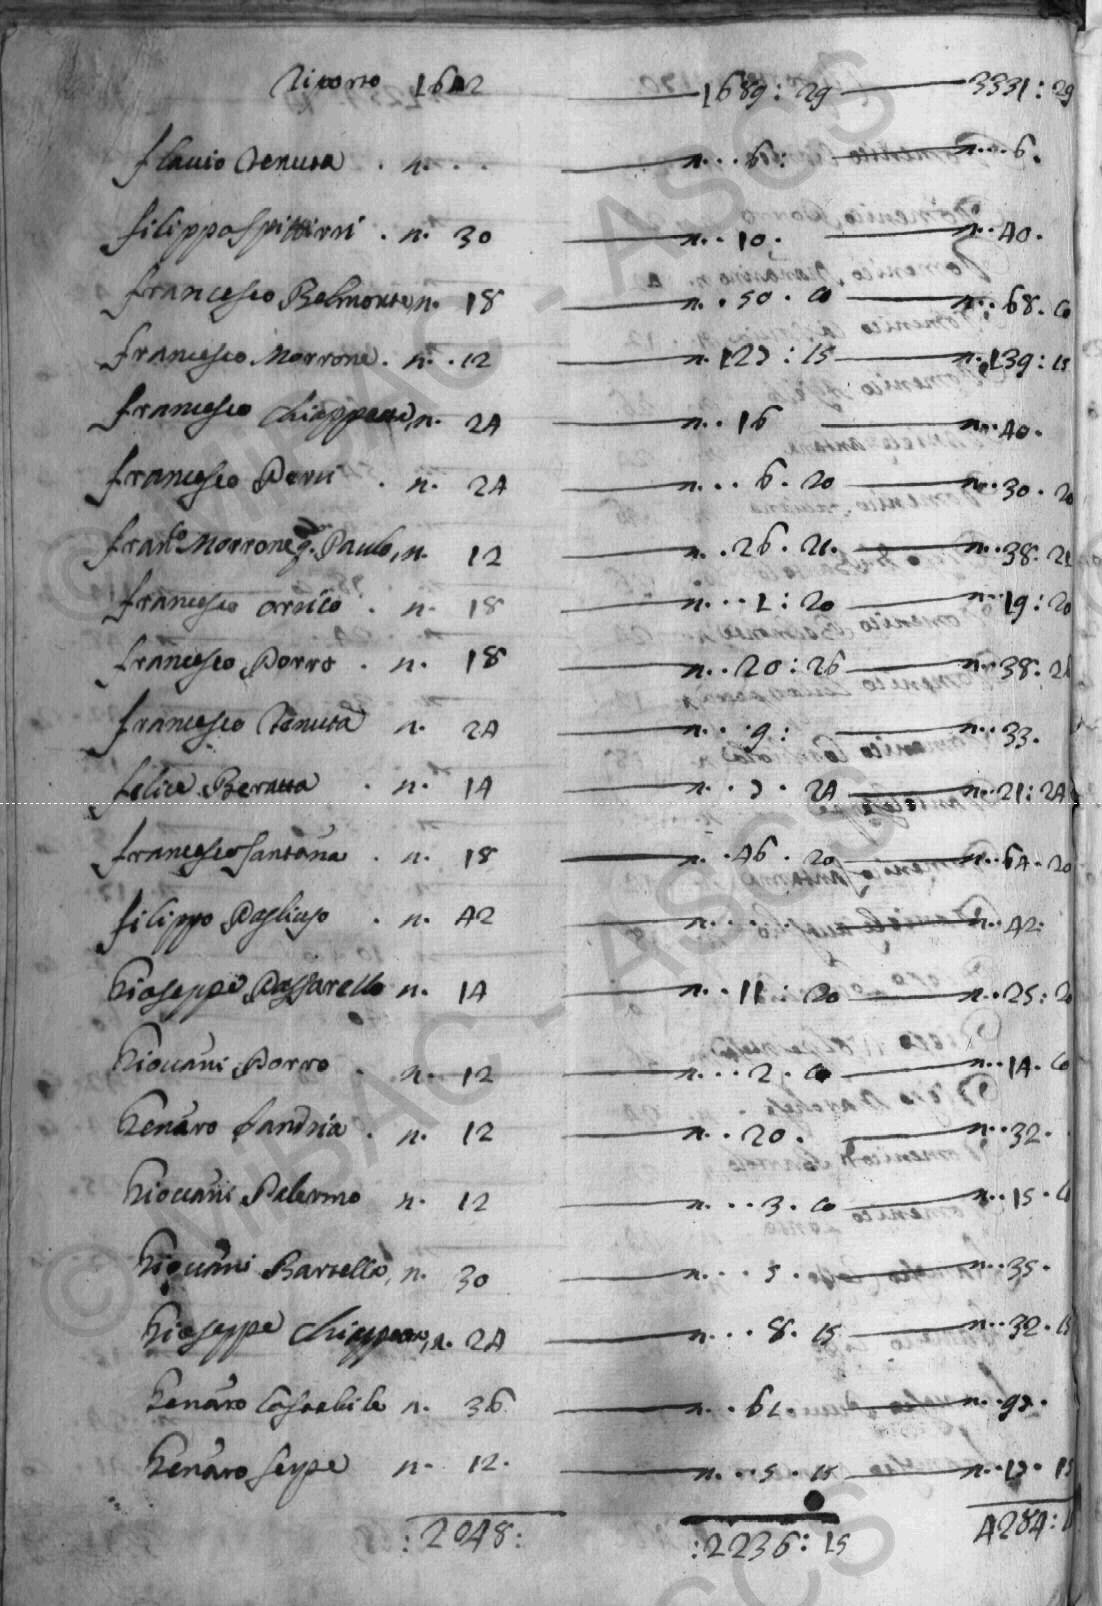 Riporto 1642 1689 : 29 3331 : 29
flavio tenuta . n. . . n. . . 6 : n. . . 6 .
filippo spittirri . n. 30 n. . 10 . n. . 40 .
francesco Belmonte n. 18 n. . 50 . 10 n. . 68 . 10
francesco Morrone . n. . 12 n. 127 : 15 n. 139 : 15
francesco Chiappetta n. 24 n. . 16 n. . 40 .
francesco Perri . n. 24 n. . . 6 . 20 n. . 30 . 20
fran.co Morrone q. Paulo, n. 12 n. . 26 . 21 . n. . 38 . 21
francesco orrico . n. 18 n. . . 1 : 20 n. . . 19 : 20
francesco Porro . n. 18 n. . 20 : 26 n. . 38 . 26
francesco tenuta n. 24 n. . . 9 : n. . 33 .
felice Beratta . n. 14 n. . 7 . 24 n. . 21 : 24
francesco santána . n. 18 n. . 46 . 20 n. . 64 . 20
filippo Pagliaso . n. 42 n. . . . . n. . 42 :
Gioseppe Passarello n. 14 n. . 11 : 20 n. . 25 : 20
Giovani Porro . n. 12 n. . . 2 . 10 n. . . 14 . 10
Genaro Sandria . n. 12 n. . 20 . n. . 32 .
Giovani Palermo n. 12 n. . . 3 . 10 n. . 15 . 10
Giovani Bartella, n. 30 n. . . 5 . n. . 35 .
Gioseppe Chiappetta, n. 24 n. . . 8 . 15 n. . 32 . 15
Genaro Costabile n. 36 n. . 61 . n. . 97 .
Genaro serpe n. 12 . n. . . 5 . 15 n. . 17 . 15
: 2048 : : 2236 : 15 4284 : 1
© MiBAC - ASCS
© MiBAC - ASCS